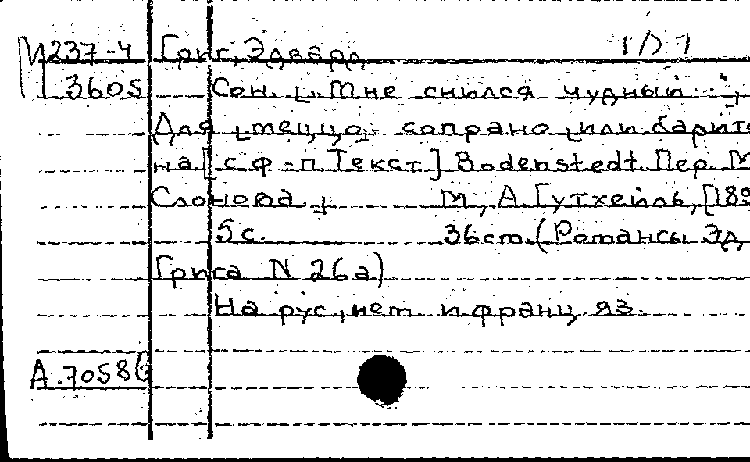 М237-4 Григ, Эдвард
3605 Сон. "Мне снился чудный..."
Для меццо-сопрано или барит
на [с ф-п Текст] Bodenstedt. Пер. М
Слонова. М., А. Гутхейль, [189
5с. 36 cm. (Романсы Эд
Грига N 26а)
На рус., нем. и франц. яз.
А.7058